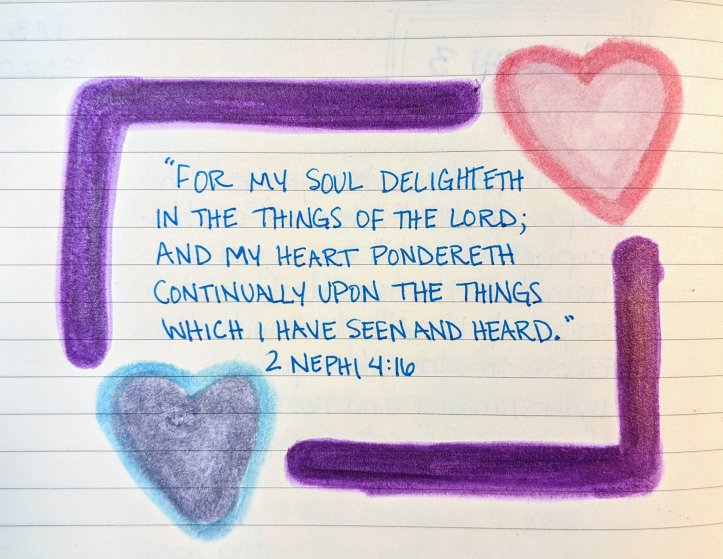 "FOR MY SOUL DELIGHTETH
IN THE THINGS OF THE LORD;
AND MY HEART PONDERETH
CONTINUALLY UPON THE THINGS
WHICH I HAVE SEEN AND HEARD."
2 NEPHI 4:16